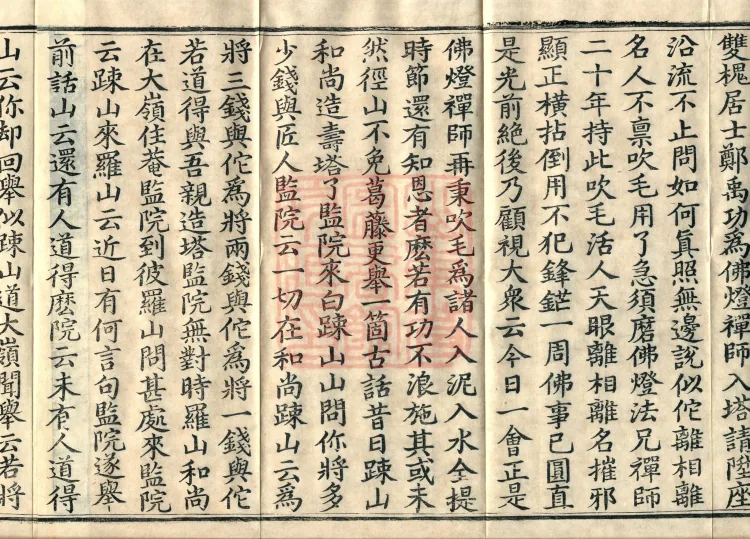 雙槐居士鄭禹功為佛燈禪師入塔請陞座
沿流不止問如何真照無邊說似佗離相離
名人不稟吹毛用了急須磨佛燈法兄禪師
二十年持此吹毛活人天眼離相離名摧邪
顯正橫拈倒用不犯鋒鋩一周佛事已圓直
是光前絕後乃顧視大衆云今日一會正是
佛燈禪師再秉吹毛為諸人入泥入水全提
時節還有知恩者麽若有功不浪施其或未
然徑山不免葛藤更舉一箇古話昔日踈山
和尚造壽塔了監院來白踈山山問你將多
少錢與匠人監院云一切在和尚踈山云為
將三錢與佗為將兩錢與佗為將一錢與佗
若道得與吾親造塔監院無對時羅山和尚
在大嶺住菴監院到彼羅山問甚處來監院
云踈山來羅山云近日有何言句監院遂舉
前話山云還有人道得麽院云未有人道得
山云你却回舉似踈山道大嶺聞舉云若將